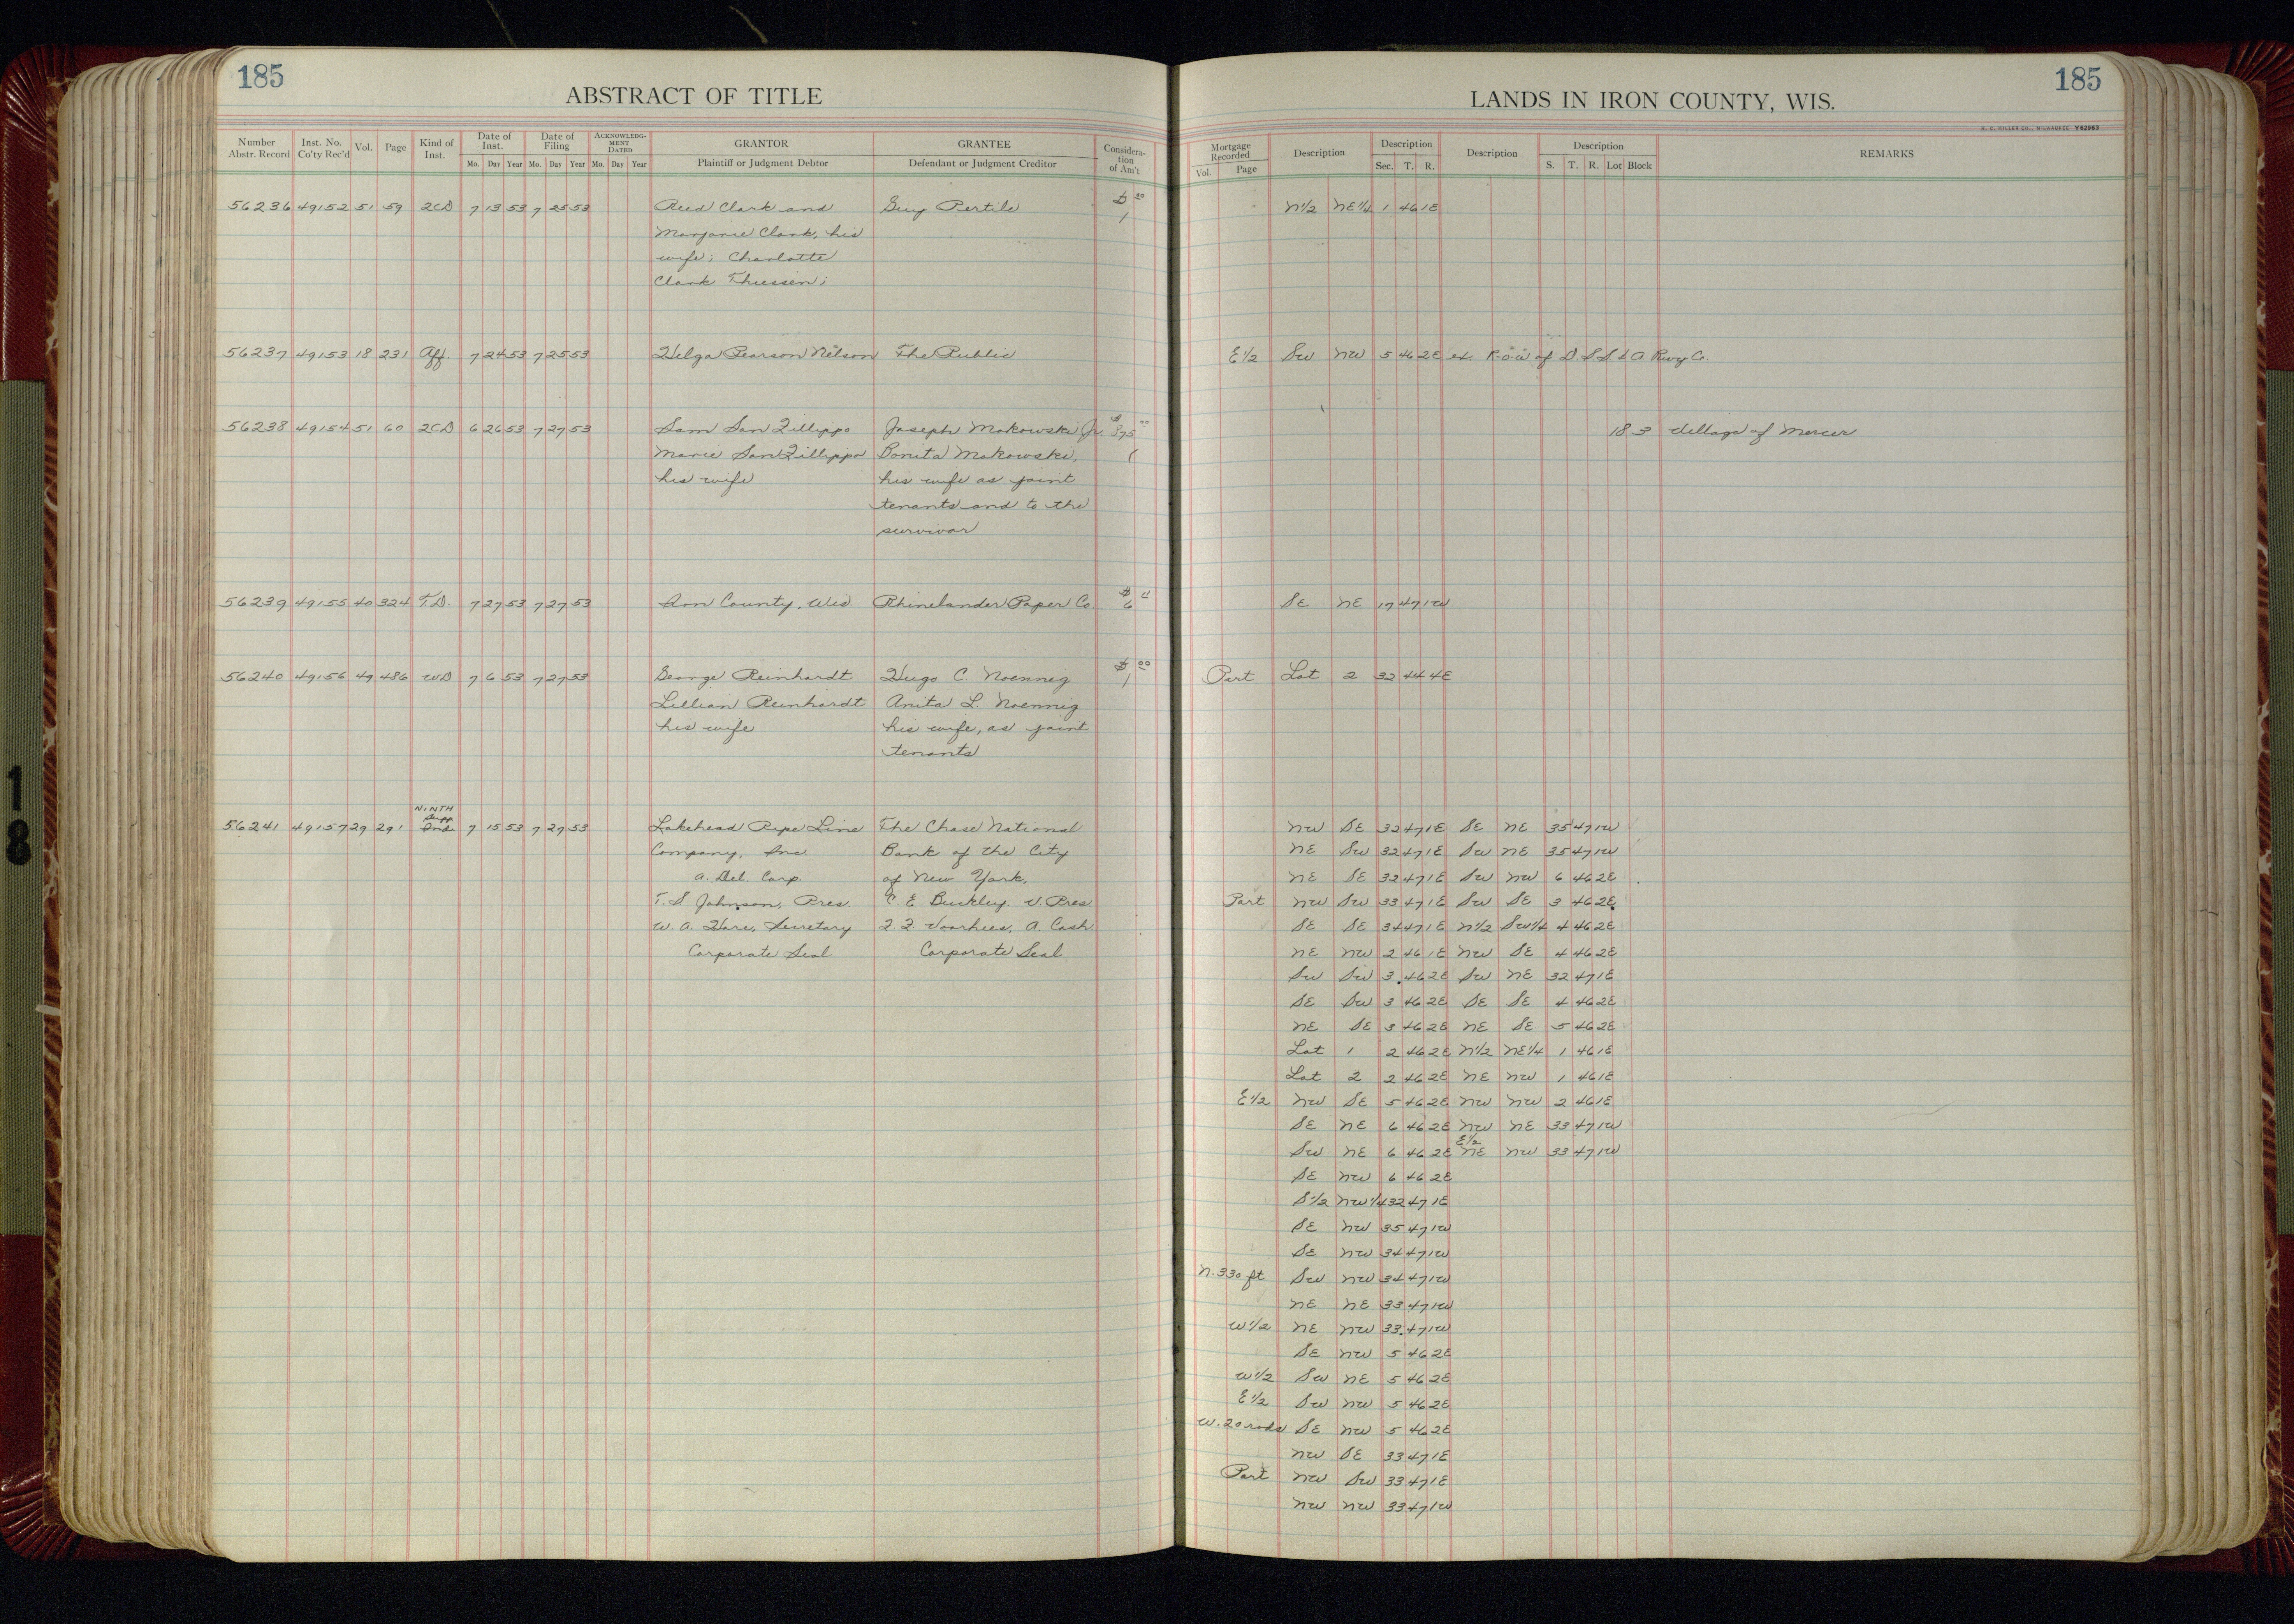 185
ABSTRACT OF TITLE
Number Abstr. Record Inst. No. Co'ty Rec'd Vol. Page Kind of Inst. Date of Inst. Mo. Day Year Date of Filing Mo. Day Year ACKNOWLEDGMENT DATED Mo. Day Year GRANTOR Plaintiff or Judgment Debtor GRANTEE Defendant or Judgment Creditor Consideration of Am't
56236 49152 51 59 2CD 7 13 53 7 25 53 Reed Clark and Guy Pertile $ 1 00
Marjorie Clark, his
wife; Charlotte
Clark Thiessen;
56237 49153 18 231 Aff. 7 24 53 7 25 53 Helga Pearson Nelson The Public
56238 49154 51 60 2CD 6 26 53 7 27 53 Sam San Fillippo Joseph Makowski Jr. $ 875 00
Marie San Fillippo Bonita Makowski,
his wife his wife as joint
tenants and to the
survivor
56239 49155 40 324 T.D. 7 27 53 7 27 53 Iron County, Wis. Rhinelander Paper Co $ 6 11
56240 49156 49 486 WD 7 6 53 7 27 53 George Reinhardt Hugo C. Noennig $ 1 00
Lillian Reinhardt Anita L. Noennig
his wife his wife, as joint
tenants
NINTH
Supp.
56241 49157 29 291 Inde 7 15 53 7 27 53 Lakehead Pipe Line The Chase National
Company, Inc Bank of the City
a. Del. Corp. of New York.
T. S Johnson, Pres. C. E Buckley, V. Pres
W. A. Hare, Secretary F. F. Voorhees, A. Cash
Corporate Seal Corporate Seal
LANDS IN IRON COUNTY, WIS.
185
H. C. MILLER CO., MILWAUKEE Y62963
Mortgage Recorded Vol. Page Description Description Sec. T. R. Description Description S. T. R. Lot Block REMARKS
N1/2 NE1/4 1 46 1E
E1/2 SW NW 5 46 2E ex. R.O.W of D S S & A. Rwy Co.
18 3 Village of Mercer
SE NE 17 47 1W
Part Lot 2 32 44 4E
NW SE 32 47 1E SE NE 35 47 1W
NE SW 32 47 1E SW NE 35 47 1W
NE SE 32 47 1E SW NW 6 46 2E
Part NW SW 33 47 1E SW SE 3 46 2E
SE SE 34 47 1E N1/2 SW1/4 4 46 2E
NE NW 2 46 1E NW SE 4 46 2E
SW SW 3 46 2E SW NE 32 47 1E
SE SW 3 46 2E SE SE 4 46 2E
NE SE 3 46 2E NE SE 5 46 2E
Lot 1 2 46 2E N1/2 NE1/4 1 46 1E
Lot 2 2 46 2E NE NW 1 46 1E
E1/2 NW SE 5 46 2E NW NW 2 46 1E
SE NE 6 46 2E NW NE 33 47 1W
SW NE 6 46 2E E1/2 NE NW 33 47 1W
SE NW 6 46 2E
S1/2 NW1/4 32 47 1E
SE NW 35 47 1W
SE NW 34 47 1W
N. 330 ft SW NW 34 47 1W
NE NE 33 47 1W
W1/2 NE NW 33 47 1W
SE NW 5 46 2E
W1/2 SW NE 5 46 2E
E1/2 SW NW 5 46 2E
W. 20 rods SE NW 5 46 2E
NW SE 33 47 1E
Part NW SW 33 47 1E
NW NW 33 47 1W
18